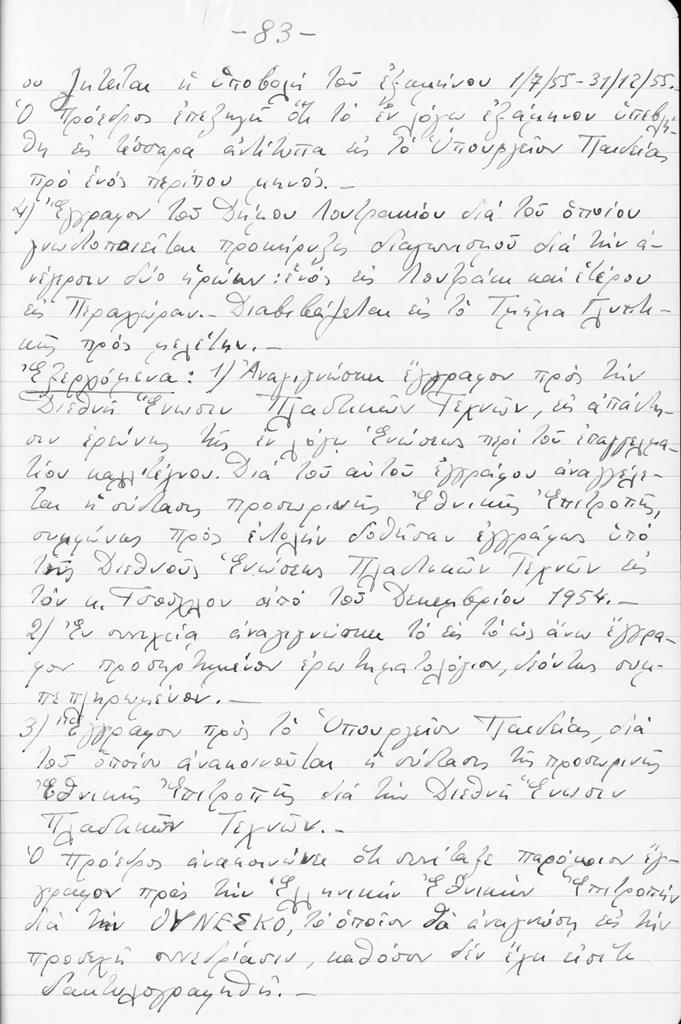 -83-
ου ζητεῖται ἡ ὑποβολή τοῦ ἑξαμήνου 1/7/55-31/12/55.
Ὁ Πρόεδρος ἐπεξηγεῖ ὅτι τό ἐν λόγω ἑξάμηνον ὑπεβλή-
θη εἰς τέσσαρα ἀντίτυπα εἰς τό Ὑπουργεῖον Παιδείας
πρό ἑνός περίπου μηνός.-
4) Ἔγγραφον τοῦ Δήμου Λουτρακίου διά τοῦ ὁποίου
γνωστοποιεῖται προκήρυξις διαγωνισμοῦ διά τήν ἀ-
νέγερσιν δύο ἡρώων: ἑνός εἰς Λουτράκι καί ἑτέρου
εἰς Περαχώραν.- Διαβιβάζεται εἰς τό Τμῆμα Γλυπτι-
κῆς πρός μελέτην.-
Ἐξερχόμενα: 1) Ἀναγιγνώσκει ἔγγραφον πρός τήν
Διεθνῆ Ἕνωσιν Πλαστικῶν Τεχνῶν, εἰς ἀπάντη-
σιν ἐρεύνης τῆς ἐν λόγῳ Ἑνώσεως περί τοῦ ἐπαγγελμα-
τίου καλλιτέχνου. Διά τοῦ αὐτοῦ ἐγγράφου ἀναγγέλε-
ται ἡ σύστασις προσωρινῆς Ἐθνικῆς Ἐπιτροπῆς,
συμφώνως πρός ἐντολήν δοθεῖσαν ἐγγράφως ὑπό
τῆς Διεθνοῦς Ἑνώσεως Πλαστικῶν Τεχνῶν εἰς
τόν κ. ἀπό τοῦ Δεκεμβρίου 1954.-
2) Ἐν συνεχείᾳ ἀναγιγνώσκει τό εἰς τό ὡς ἄνω ἔγγρα-
φον προσηρτημένον ἐρωτηματολόγιον, δεόντως συμ-
πεπληρωμένον.-
3) Ἔγγραφον πρός τό Ὑπουργεῖον Παιδείας, διά
τοῦ ὁποίου ἀνακοινοῦται ἡ σύστασις τῆς προσωρινῆς
Ἐθνικῆς Ἐπιτροπῆς διά τήν Διεθνῆ Ἕνωσιν
Πλαστικῶν Τεχνῶν.-
Ὁ Πρόεδρος ἀνακοινώνει ὅτι συνέταξε παρόμοιον ἔγ-
γραφον πρός τήν Ἑλληνικήν Ἐθνικήν Ἐπιτροπήν
διά τήν ΟΥΝΕΣΚΟ, τό ὁποῖον θά ἀναγνώση εἰς τήν
προσεχῆ συνεδρίασιν, καθόσον δέν ἔχει εἰσέτι
δακτυλογραφηθῆ.-